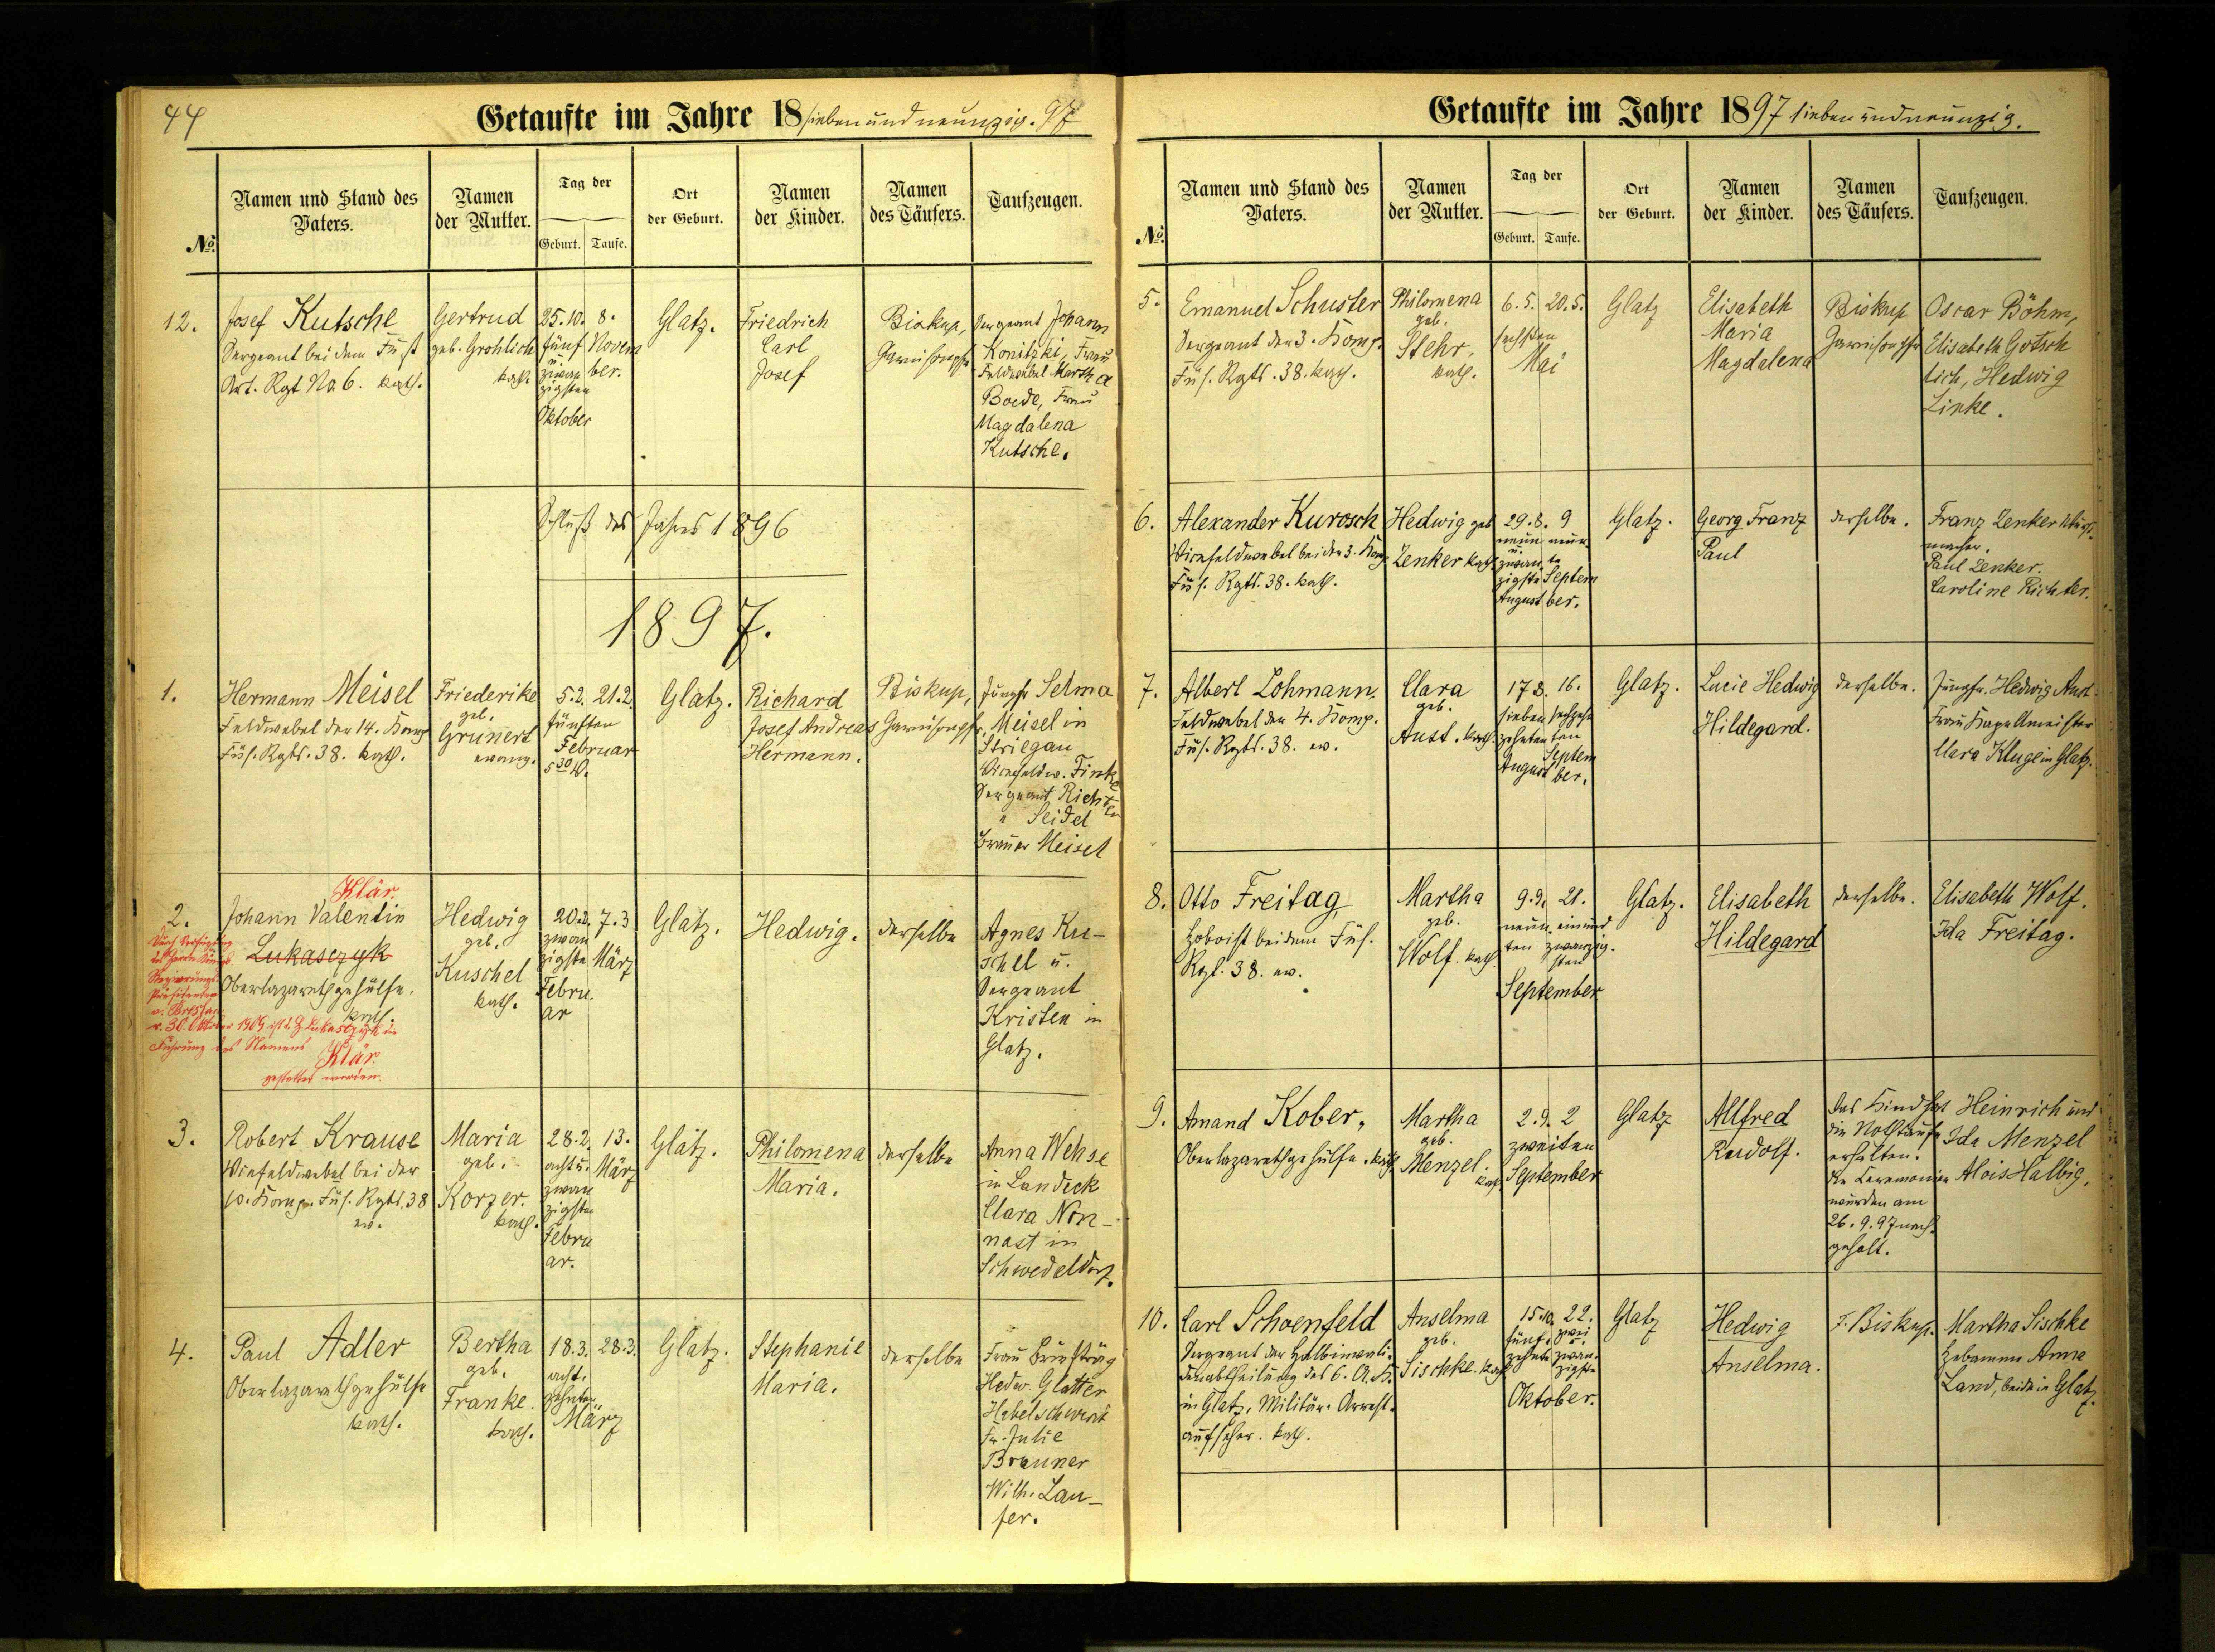 44
Getaufte im Jahre 18 siebenundneunzig. 97
No.
Namen und Stand des Vaters.
Namen der Mutter.
Tag der
Geburt. Taufe.
Ort der Geburt.
Namen der Kinder.
Namen des Täufers.
Taufzeugen.
12.
Josef Kutsche
Sergeant bei dem Fuß
Art. Rgt No 6. kath.
Gertrud
geb. Grohlich
kath.
25.10.
fünf
u.
zwan
zigsten
Oktober
8.
Novem
ber.
Glatz.
Friedrich
Carl
Josef
Biskup,
Garnisonpfr
Sergeant Johann
Konitzki, Frau
Feldwebel Martha
Boede, Frau
Magdalena
Kutsche.
Schluß des Jahres 1896
1897.
1.
Hermann Meisel
Feldwebel der 14. Komp
Füs. Rgts. 38. kath.
Friederike
geb.
Grünert
evang.
5.2. 21.2.
fünften
Februar
5 30 V.
Glatz.
Richard
Josef Andreas
Hermann.
Biskup,
Garnisonpfr.
Jungfr Selma
Meisel in
Striegau
Vicefeldw. Finke
Sergeant Richter
" Seidel
Brauer Meisel
2.
Klär.
Johann Valentin
Lukasczyk
Oberlazarethgehülfe.
kath.
Durch Verfügung
des Herrn
Regierungs
Präsidenten
v. 30. Oktober 1905 ist d. J. Lukasczyk die
Führung des Namens Klär.
gestattet worden.
Hedwig
geb.
Kuschel
kath.
20.2.
zwan
zigsten
Febru.
ar
7.3
März
Glatz.
Hedwig.
derselbe
Agnes Ku-
schel u.
Sergeant
Kristen in
Glatz.
3.
Robert Krause
Vicefeldwebel bei der
10. Komp. Füs. Rgts. 38
ev.
Maria
geb.
Korzer.
kath.
28.2.
acht u.
zwan
zigsten
Febru
ar.
13.
März
Glatz.
Philomena
Maria.
derselbe
Anna Wehse
in Landeck
Clara Non-
nast in
Schwedeldorf.
4.
Paul Adler
Oberlazarethgehülfe
kath.
Bertha
geb.
Franke.
kath.
18.3. 28.3.
acht.
zehnten
März
Glatz.
Stephanie
Maria.
derselbe
Frau Briefträg
Hedw. Glatter
Habelschwert
Fr. Julie
Brauner
Wilh. Lau-
fer.
Getaufte im Jahre 1897 siebenundneunzig.
No.
Namen und Stand des Vaters.
Namen der Mutter.
Tag der
Geburt. Taufe.
Ort der Geburt.
Namen der Kinder.
Namen des Täufers.
Taufzeugen.
5.
Emanuel Schuster
Sergeant der 3. Komp.
Füs. Rgts. 38. kath.
Philomena
geb.
Stehr,
kath.
6.5. 20.5.
sechsten
Mai
Glatz
Elisabeth
Maria
Magdalena
Biskup
Garnisonpfr
Oscar Böhm,
Elisabeth Gotsch
lich, Hedwig
Linke.
6.
Alexander Kurosch
Vicefeldwebel bei der 3. Komp
Füs. Rgts. 38. kath.
Hedwig geb
Zenker kath.
29.8.
neun
u.
zwan
zigste
August
9
neun
te
Septem
ber.
Glatz.
Georg Franz
Paul
derselbe.
Franz Zenker
macher.
Paul Zenker.
Caroline Richter.
7.
Albert Lohmann,
Feldwebel der 4. Komp.
Füs. Rgts. 38. ev.
Clara
geb.
Aust. kath.
17 8.
sieben
zehnten
August
16.
sechzehn
ten
Septem
ber.
Glatz.
Lucie Hedwig
Hildegard.
derselbe.
Jungfr. Hedwig Aust
Frau Kapellmeister
Clara Kluge in Glatz.
8.
Otto Freitag,
Hoboist bei dem Füs.
Rgt. 38. ev.
Martha
geb.
Wolf. kath.
9.9.
neun
ten
21.
einund
zwanzig.
sten
September
Glatz.
Elisabeth
Hildegard
derselbe.
Elisabeth Wolf.
Ida Freitag.
9.
Amand Kober,
Oberlazarethgehülfe. kath.
Martha
geb.
Menzel.
kath.
2.9. 2
zweiten
September
Glatz
Allfred
Rudolf.
Das Kind hat
die Nothtaufe
erhalten.
die Ceremonien
wurden am
26.9.97 nach
geholt.
Heinrich und
Ida Menzel
Alois Halbig.
10.
Carl Schoenfeld
Sergeant der Halbinvali-
denabtheilung des 6. A.K.
in Glatz, Militär-Arrest-
aufseher. kath.
Anselma
geb.
Sischke. kath
15.10.
fünf.
zehnte
22.
zwei
zwan.
zigste
Oktober.
Glatz
Hedwig
Anselma.
F. Biskup.
Martha Sischke
Hebamme Anna
Land, beide in Glatz.